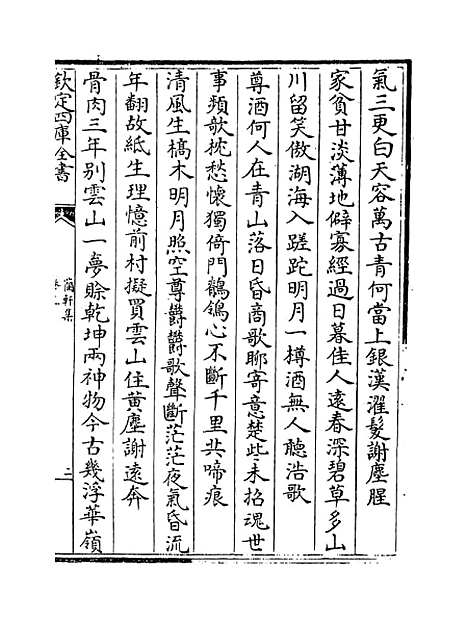 氣三更白天容萬古青何當上銀漢濯髮謝塵腥
家貧甘淡薄地僻寡經過日暮佳人遠春深碧草多山
川留笑傲湖海入蹉跎明月一樽酒無人聽浩歌
尊酒何人在青山落日昏商歌聊寄意楚些未招魂世
事頻欹枕愁懷獨倚門鶺鴒心不斷千里共啼痕
清風生槁木明月照空尊欝欝歌聲斷茫茫夜氣昏流
年翻故紙生理憶前村擬買雲山住黄塵謝遠奔
骨肉三年別雲山一夢賒乾坤兩神物今古幾浮華嶺
欽定四庫全書
蘭軒集
二